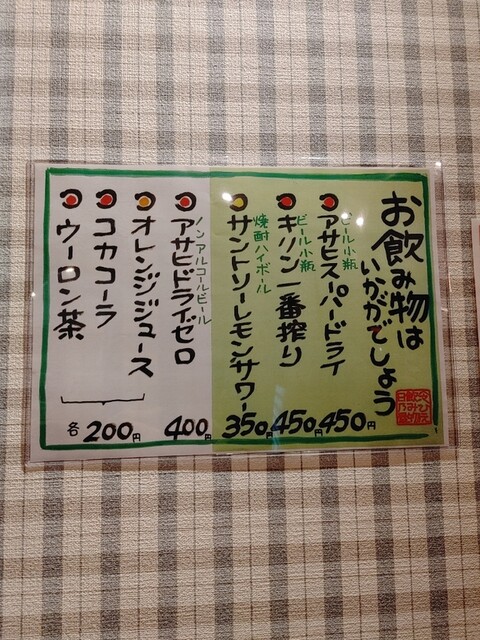 お飲み物は
いかがでしょう
ビール小瓶
アサヒスーパードライ
450円
ビール小瓶
キリン一番搾り
450円
焼酎ハイボール
サントリーレモンサワー
350円
ノンアルコールビール
アサヒドライゼロ
400円
オレンジジュース
コカコーラ
ウーロン茶
各200円